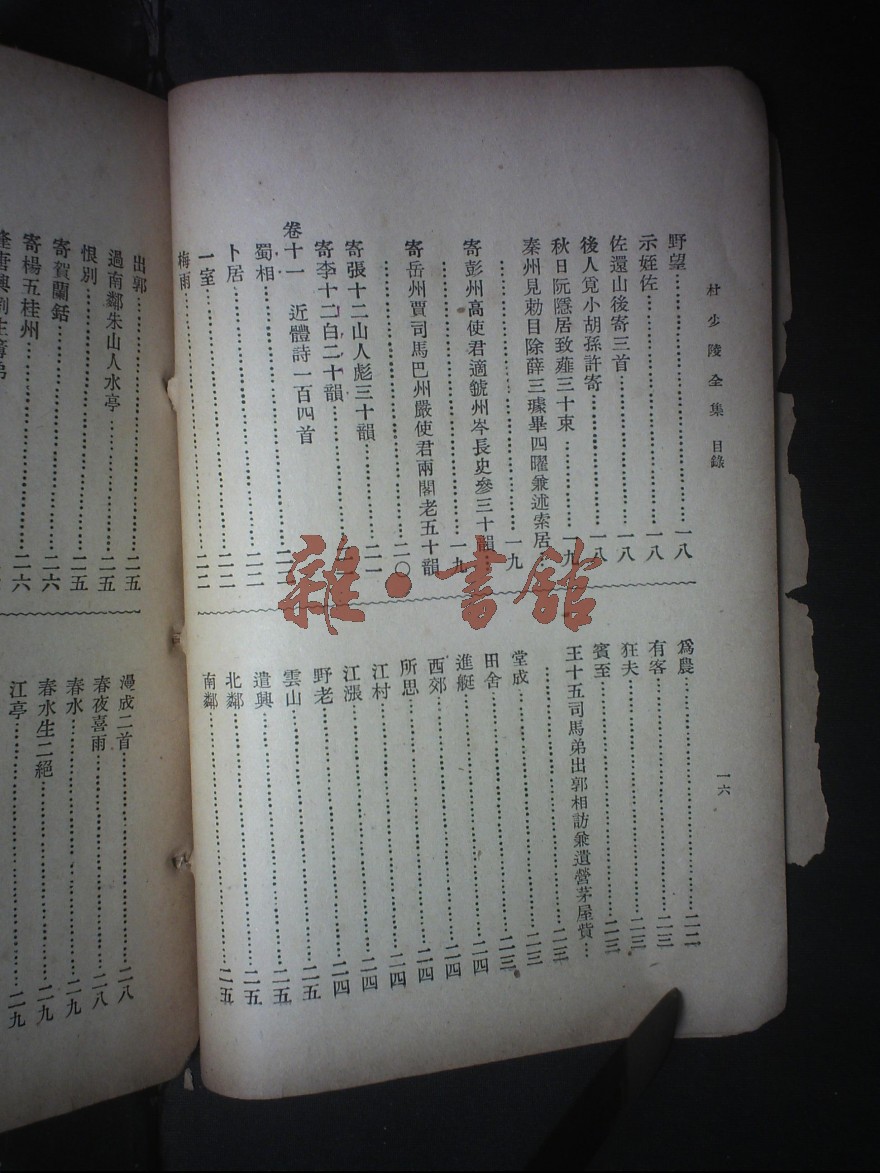 杜少陵全集 目錄
一六
野望……一八
示姪佐……一八
佐還山後寄三首……一八
後人覓小胡孫許寄……一八
秋日阮隱居致薤三十束……一九
秦州見勅目除薛三璩畢四曜兼述索居…
……一九
寄彭州高使君適虢州岑長史參三十韻…
……一九
寄岳州賈司馬巴州嚴使君兩閣老五十韻
……二〇
寄張十二山人彪三十韻……二一
寄李十二白二十韻……
卷十一 近體詩一百四首
蜀相……二二
卜居……二二
一室……二二
梅雨……二二
爲農……二二
有客……二三
狂夫……二三
賓至……二三
王十五司馬弟出郭相訪兼遺營茅屋貲…
……二三
堂成……二三
田舍……二三
進艇……二四
西郊……二四
所思……二四
江村……二四
江漲……二四
野老……二四
雲山……二五
遣興……二五
北鄰……二五
南鄰……二五
出郭……二五
過南鄰朱山人水亭……二五
恨別……二五
寄賀蘭銛……二六
寄楊五桂州……二六
逢唐興劉主簿弟
漫成二首……二八
春夜喜雨……二八
春水……二九
春水生二絕……二九
江亭……二九
雜·書館